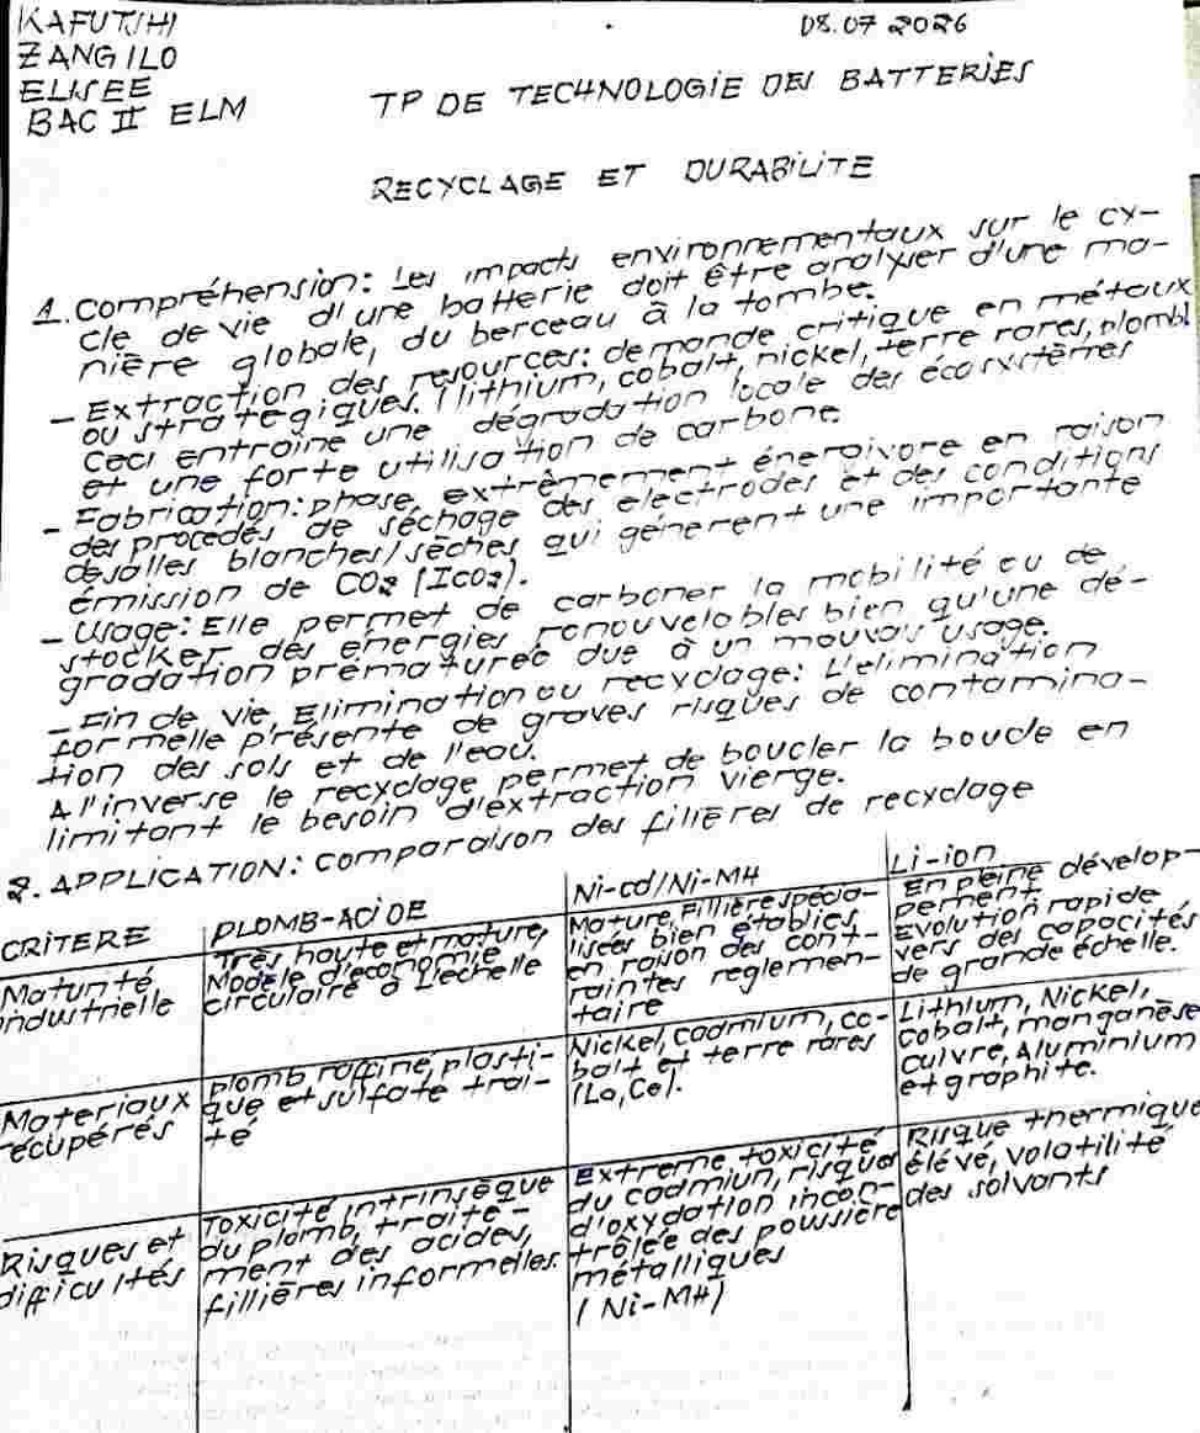 KAFUTSHI
ZANGILO
ELISEE
BAC II ELM
08.07 2026
TP DE TECHNOLOGIE DES BATTERIES
RECYCLAGE ET DURABILITE
1. Compréhension: Les impacts environnementaux sur le cy-
cle de vie d'une batterie doit être analyser d'une ma-
nière globale, du berceau à la tombe.
- Extraction des resources: demande critique en métaux
ou stratégiques. (lithium, cobalt, nickel, terre rares, plomb)
Ceci entraîne une dégradation locale des écosystèmes
et une forte utilisation de carbone.
- Fabrication: phase extrêmement énergivore en raison
des procedés de séchage des electrodes et des conditions
desalles blanches/sèches qui génerent une importante
émission de CO2 (Ico2).
- Usage: Elle permet de carboner la mobilité ou de
stocker des énergies renouvelables bien qu'une dé-
gradation prématurée due à un mauvais usage.
- Fin de vie, Elimination ou recyclage: L'elimination
formelle présente de graves risques de contamina-
tion des sols et de l'eau.
A l'inverse le recyclage permet de boucler la boucle en
limitant le besoin d'extraction vierge.
2. APPLICATION: comparaison des filières de recyclage
CRITERE PLOMB-ACIDE Ni-cd/Ni-MH Li-ion
Maturité
industrielle
Très haute et mature,
Modèle d'economie
circulaire à l'echelle
Mature, Fillière spécia-
lisées bien établies
en raison des cont-
raintes reglemen-
taire
En pleine dévelop-
pement
Evolution rapide
vers des capacités
de grande échelle.
Materiaux
récupérés
plomb raffiné, plasti-
que et sulfate trai-
té
Nickel, cadmium, co-
balt et terre rares
(La, Ce).
Lithium, Nickel,
cobalt, manganèse
cuivre, Aluminium
et graphite.
Risques et
difficultés
Toxicité intrinsèque
du plomb, traite-
ment des acides,
fillières informelles.
Extreme toxicité
du cadmiun, risques
d'oxydation incon-
trôlée des poussière
métalliques
(Ni-MH)
Risque thermique
élévé, volatilité
des solvants